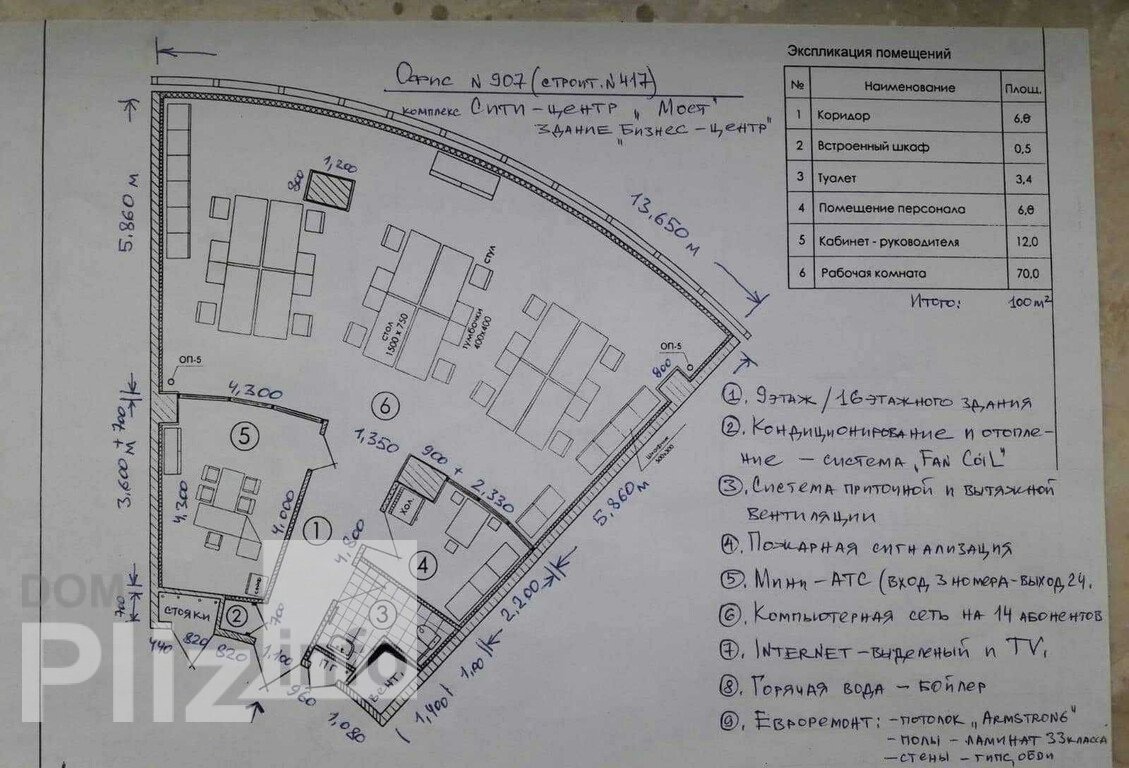 Офис N 907 (строит. N 417)
комплекс Сити-центр „Мост"
здание „Бизнес-центр"
Экспликация помещений
№ Наименование Площ.
1 Коридор 6,8
2 Встроенный шкаф 0,5
3 Туалет 3,4
4 Помещение персонала 6,8
5 Кабинет - руководителя 12,0
6 Рабочая комната 70,0
Итого: 100 м²
①. 9 этаж / 16 этажного здания
②. Кондиционирование и отопле-
ние – система „FAN COIL"
③. Система приточной и вытяжной
вентиляции
④. Пожарная сигнализация
⑤. Мини-АТС (вход 3 номера-выход 24.
⑥. Компьютерная сеть на 14 абонентов
⑦. INTERNET-выделеный и TV.
⑧. Горячая вода – бойлер
⑨. Евроремонт: - потолок „ARMSTRONG"
- полы - ламинат 33 класса
- стены - гипс, обои
5.860 м
13.650 м
1,200
800
стул
стол
1500 x 750
тумбочки
400x400
ОП-5
ОП-5
800
4,300
⑥
⑤
1,350
900
2,330
3.600 + 700
м
5.860 м
4.300
4.000
①
хол
4.800
④
③
2.200
700
стояки
②
700
440
820
820
1.100
960
ПГ
вент.
1,080
1,400
1,100
DOM
Pliz
info